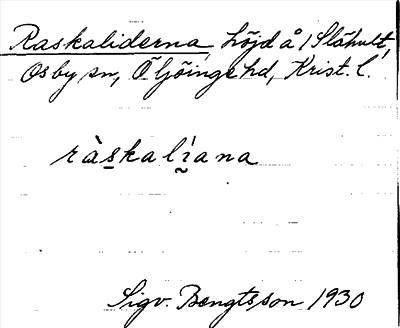 Raskaliderna, höjd å /Slähult,
Osby sn, Ö. Göinge hd, Krist. l.
ràskalíana
Sigv. Bengtsson 1930